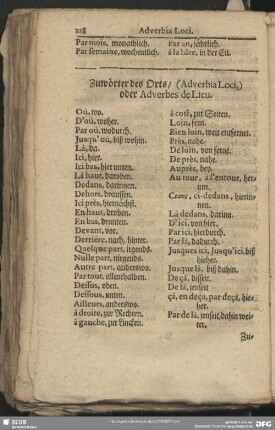 228 Adverbia Loci.
Par mois, monathlich.
Par semaine, wochentlich.
Par an, jährlich.
à la hâte, in der Eil.
Zuwörter des Orts/ (Adverbia Loci,)
oder Adverbes de Lieu.
Où, wo.
D'où, woher.
Par où, wodurch.
Jusqu' où, biß wohin.
Là, da.
Ici, hier.
Ici bas, hier unten.
Là haut, daroben.
Dedans, darinnen.
Dehors, draussen.
Ici près, hiernächst.
En haut, droben.
En bas, drunten.
Devant, vor.
Derriére, nach, hinter.
Quelque part, irgends.
Nulle part, nirgends.
Autre part, anderswo.
Par tout, allenthalben.
Dessus, oben.
Dessous, unten.
Ailleurs, anderswo.
à droite, zur Rechten.
à gauche, zur Lincken.
à coté, zur Seiten.
Loin, fern.
Bien loin, weit entfernet.
Près, nahe.
De loin, von fernt.
De près, nahe.
Auprès, bey.
Au tour, à l'entour, her-
um.
ci-dedans, hierin-
nen.
Là dedans, darinn.
D'ici, von hier.
Par ici, hierdurch.
Par là, dadurch.
Jusques ici, jusqu'ici, biß
hieher.
Jusque là, biß dahin.
De çà, disseit.
De là, jenseit
çà, en deça, par deçà, hie-
her.
Par de là, jenseit, dahin wei-
ter.
Zu-
SLUB
DFG